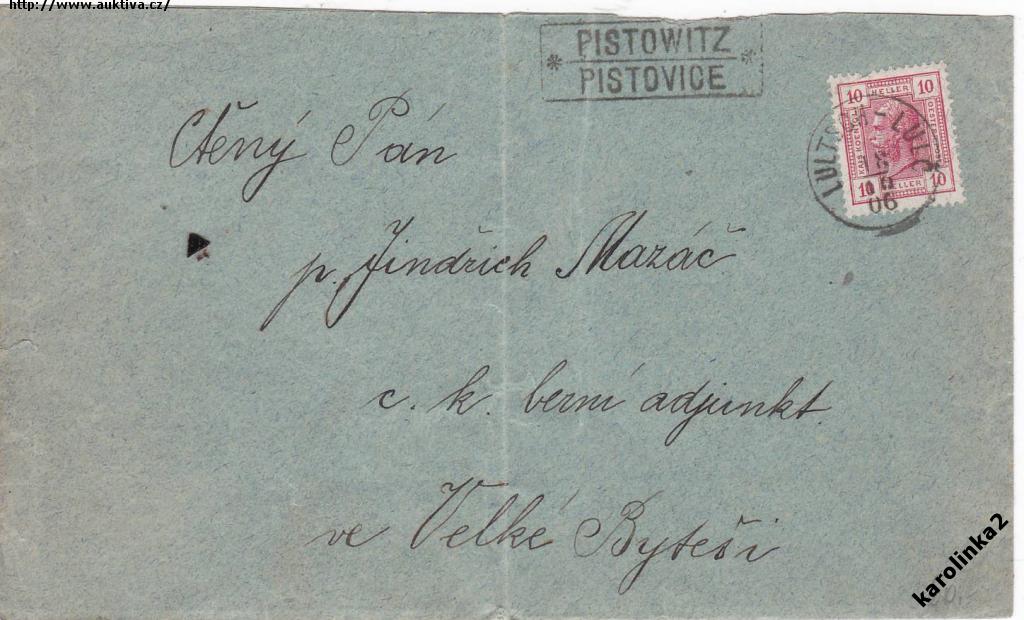 http://www.auktiva.cz/
* PISTOWITZ *
PISTOVICE
10 HELLER 10
10 HELLER 10
LULTSCH - LULČ
06
Ctěný Pán
p. Jindřich Mazáč
c. k. berní adjunkt.
ve Velké Byteši
karolinka2